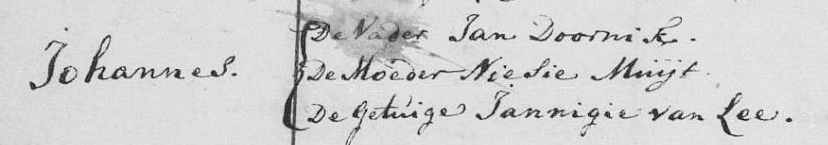 Johannes.
De Vader Jan Doornik.
De Moeder Niesie Muijt.
De Getuige Jannigie van Lee.